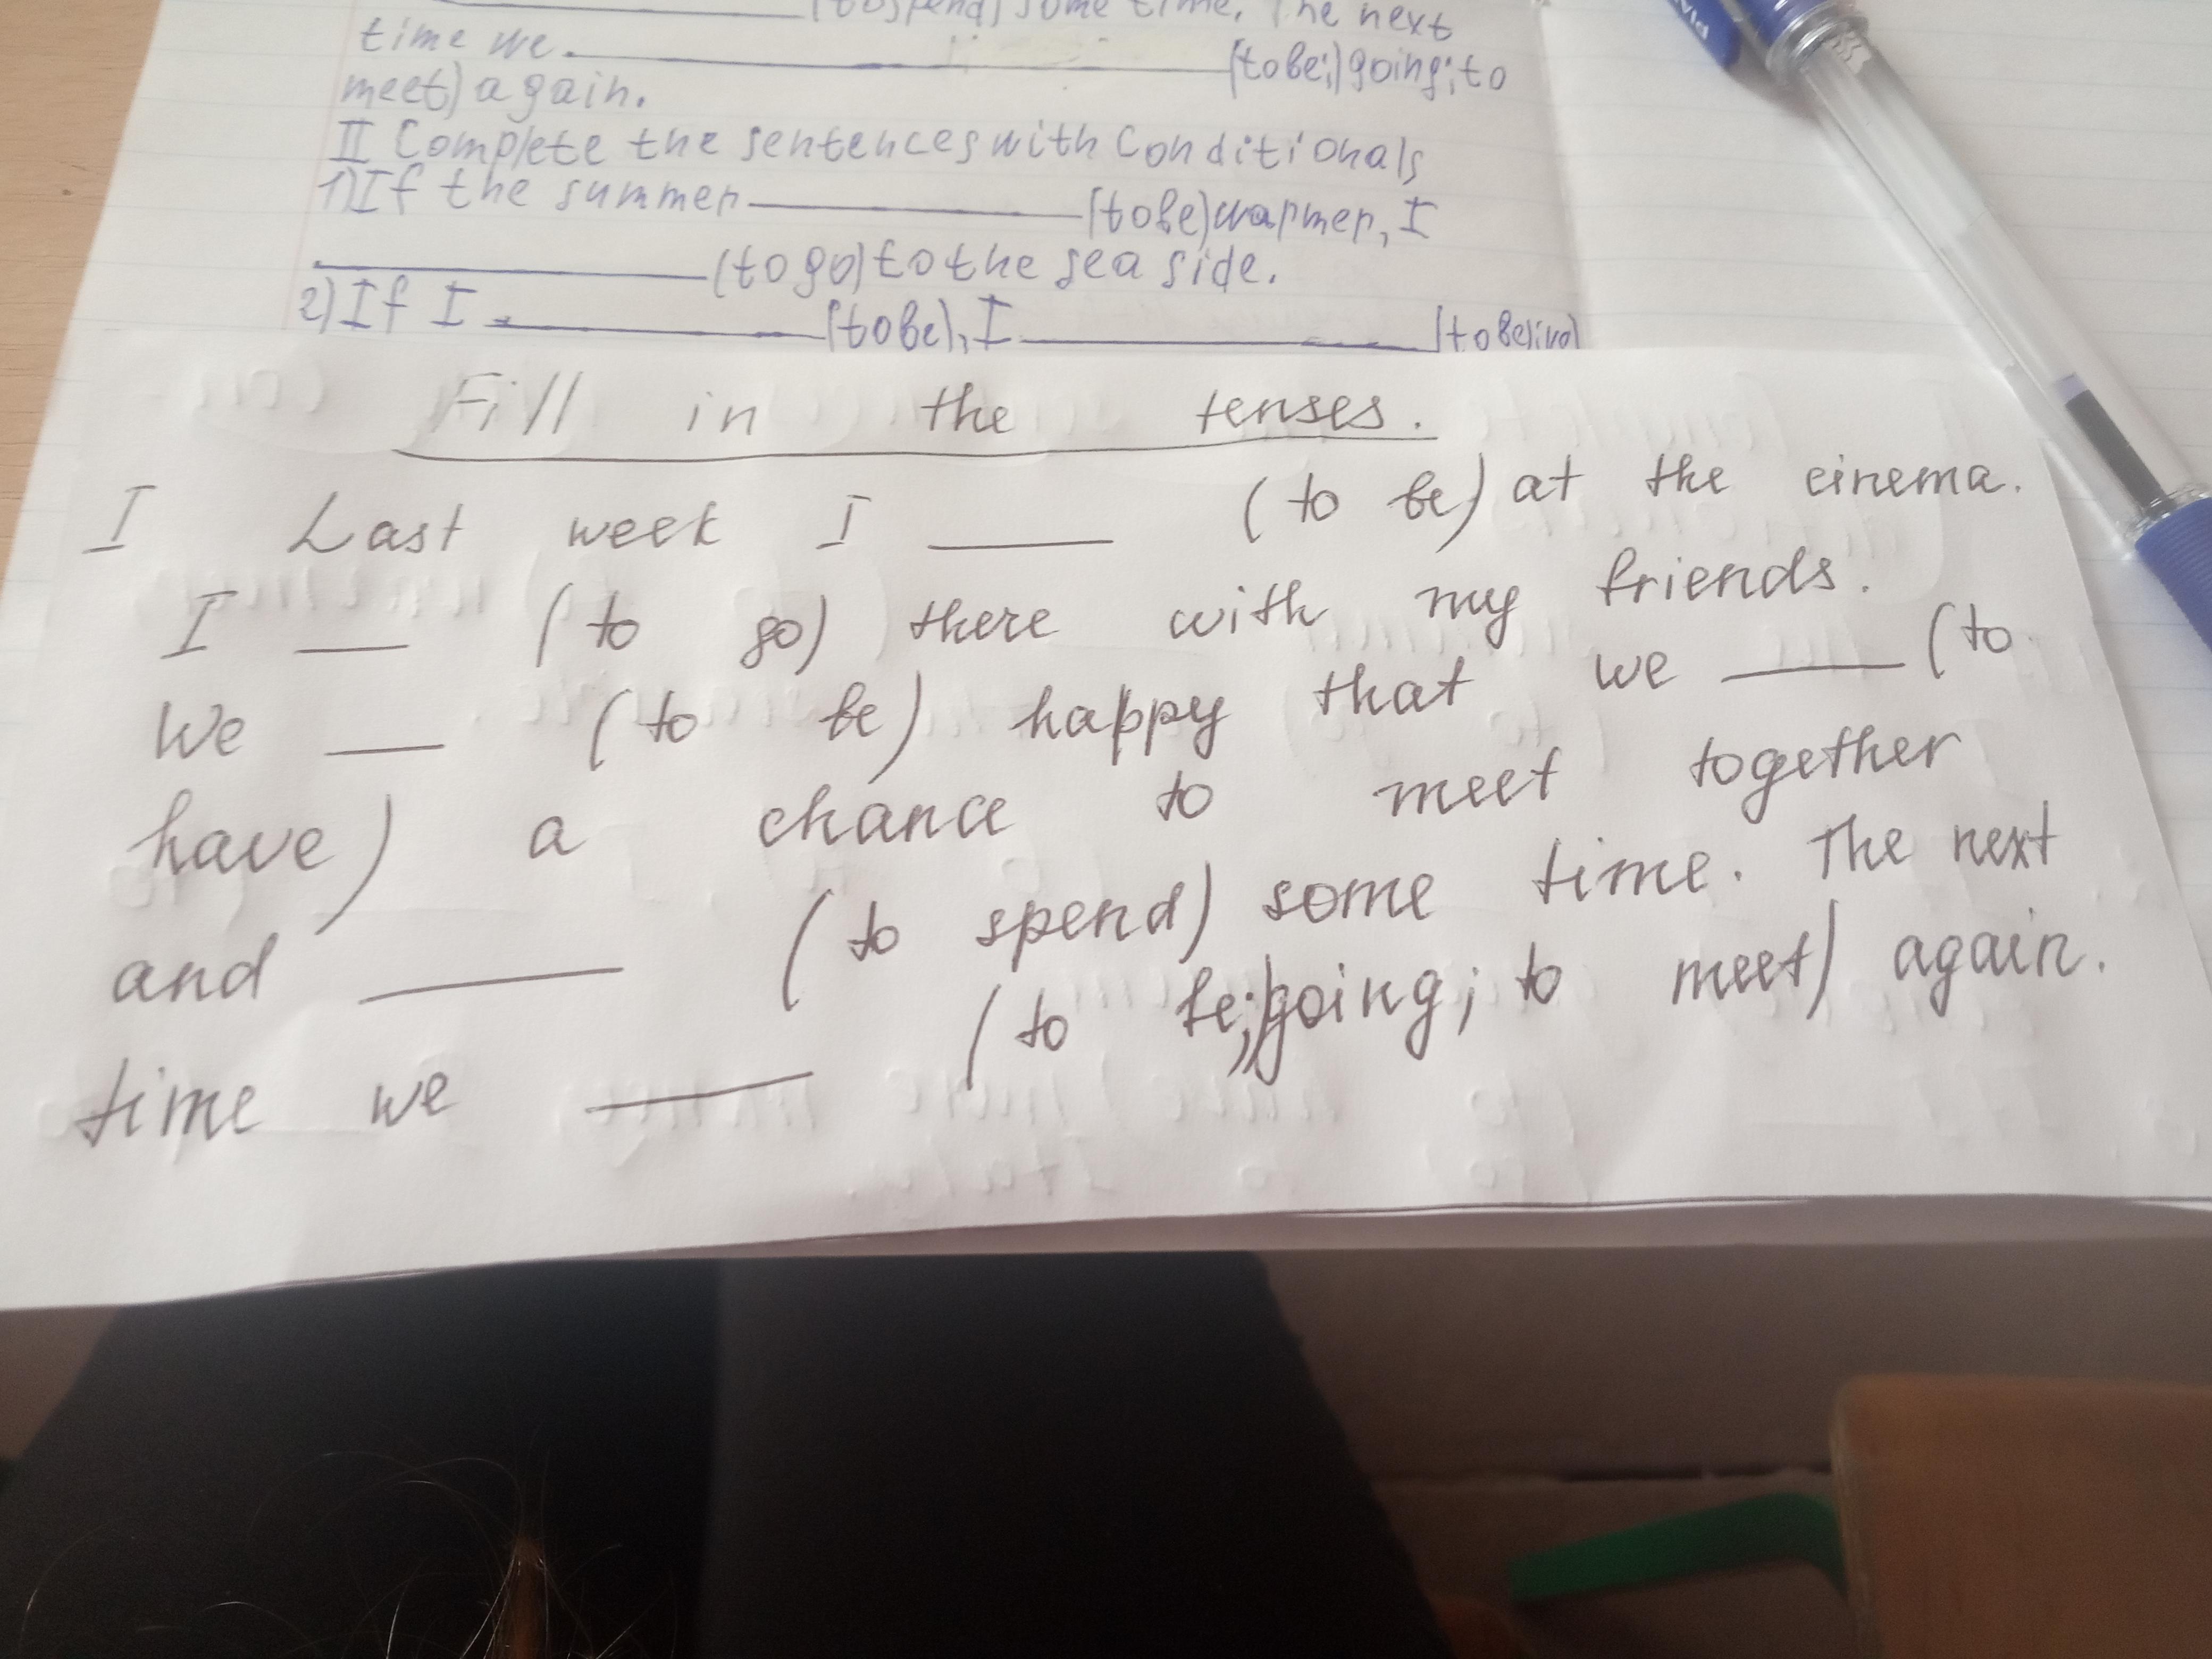 (to spend) some time. The next
time we. ____ (to be;) going; to
meet) again.
II Complete the sentences with Conditionals
1) If the summer ____ (to be) warmer, I
____ (to go) to the sea side.
2) If I ____ (to be), I ____ (to be)
Fill in the tenses.
I Last week I ____ (to be) at the cinema.
I ____ (to go) there with my friends.
We ____ (to be) happy that we ____ (to
have) a chance to meet together
and ____ (to spend) some time. The next
time we ____ (to be;) going; to meet) again.